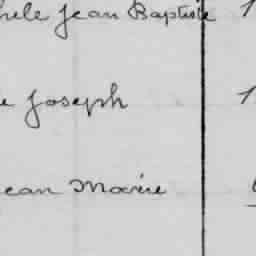 hele Jean Baptiste
e Joseph
ean Marie